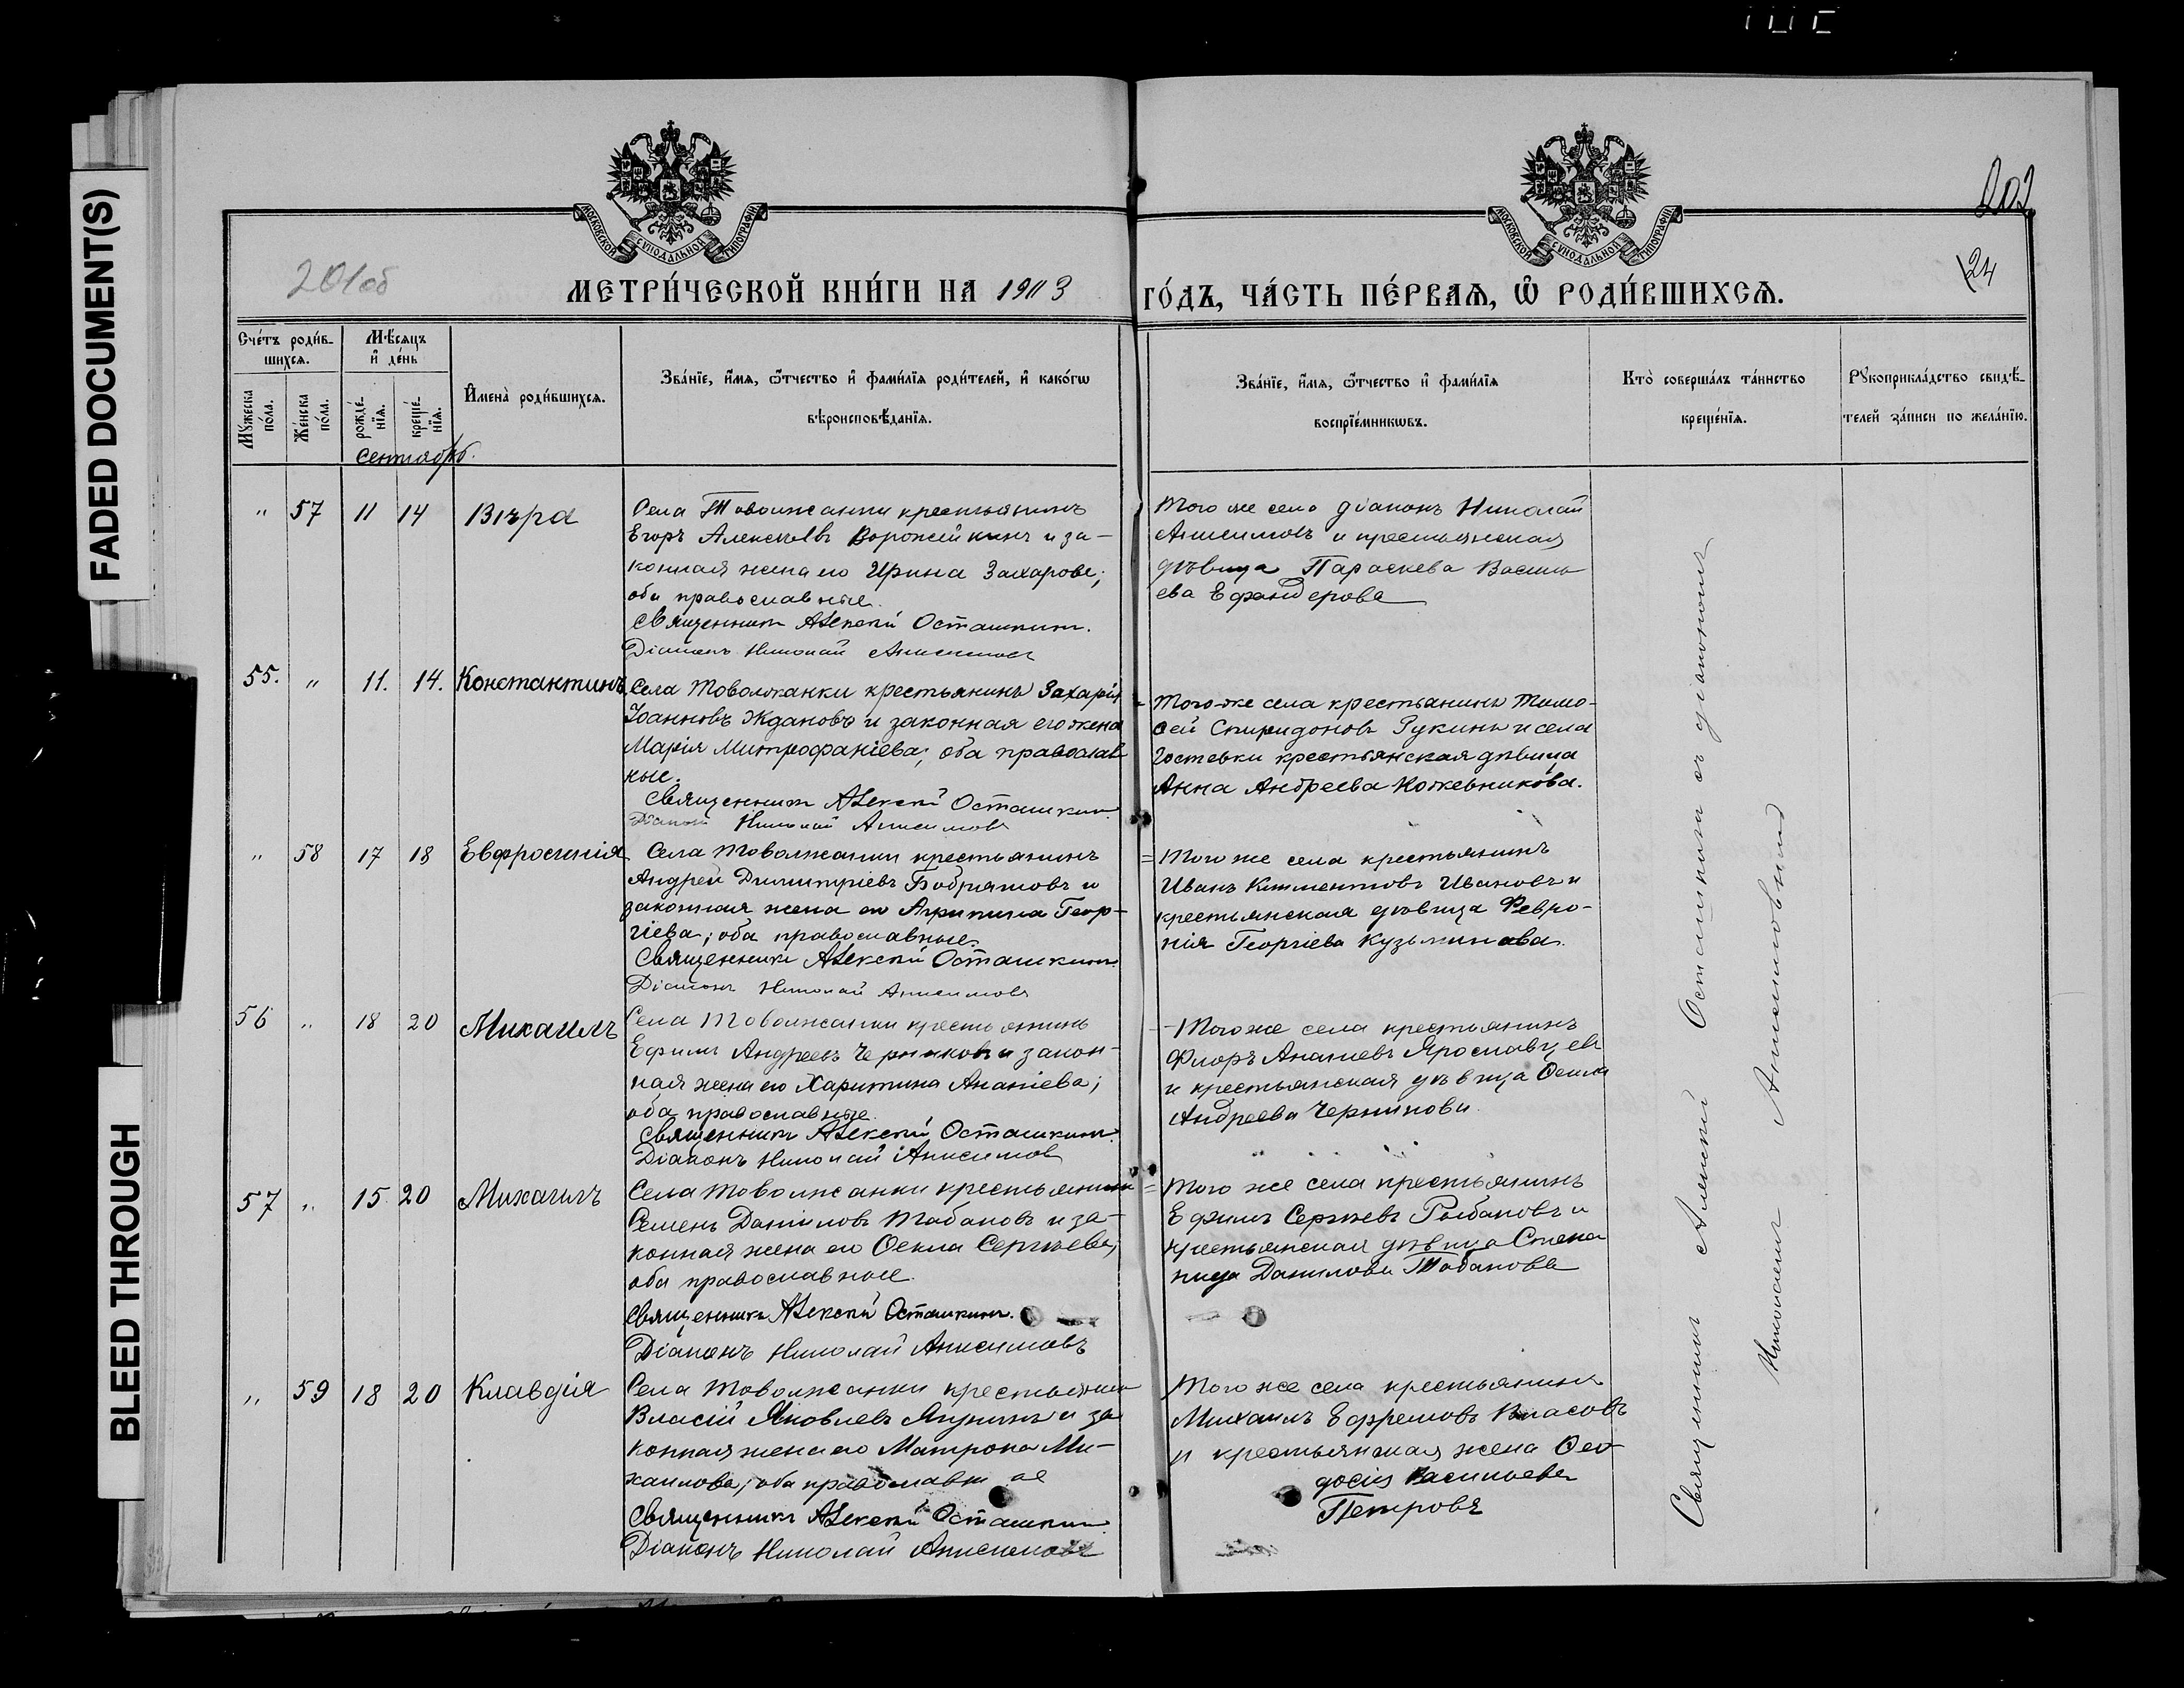 FADED DOCUMENT(S)
BLEED THROUGH
МОСКОВСКОЙ СѴНОДАЛЬНОЙ ТИПОГРАФІИ
МОСКОВСКОЙ СѴНОДАЛЬНОЙ ТИПОГРАФІИ
202
24
201об
МЕТРИ́ЧЕСКОЙ КНИ́ГИ НА 1913
ГО́ДЪ, ЧА́СТЬ ПЕ́РВАѦ, Ѡ҆ РОДИ́ВШИХСѦ.
Сче́тъ роди́в-
шихсѧ.
Мѣ́сѧцъ
и҆ де́нь
Мꙋ́жеска
по́ла.
Же́нска
по́ла.
рожде́-
нїѧ.
креще́-
нїѧ.
И҆мена̀ роди́вшихсѧ.
Зва́нїе, и҆́мѧ, ѻ҆́тчество и҆ фамѝлїѧ роди́телей, и҆ како́гѡ
вѣроисповѣ́данїѧ.
Зва́нїе, и҆́мѧ, ѻ҆́тчество и҆ фамѝлїѧ
воспрїе́мникѡвъ.
Кто̀ соверша́лъ та́инство
креще́нїѧ.
Рꙋкоприкла́дство свидѣ́-
телей за́писи по жела́нїю.
Сентябрь.
" 57 11 14 Вѣра
Села Товолжанки крестьянинъ
Егоръ Алексѣевъ Ворожейкинъ и за-
конная жена его Ирина Захарова;
оба православные.
Священникъ Алексѣй Осташкинъ.
Діаконъ Николай Анисимовъ
Того же села діаконъ Николай
Анисимовъ и крестьянская
дѣвица Параскева Василь
ева Ефандерова
55. " 11. 14. Константинъ
Села Товолжанки крестьянинъ Захарій
Іоанновъ Ждановъ и законная его жена
Марія Митрофаніева; оба православ
ные.
Священникъ Алексѣй Осташкинъ.
Діаконъ Николай Анисимовъ
Того-же села крестьянинъ Тимо-
ѳей Спиридоновъ Рукинъ и села
Гостевки крестьянская дѣвица
Анна Андреева Кожевникова.
" 58 17 18 Евфросинія
Села Товолжанки крестьянинъ
Андрей Димитріевъ Бобряшовъ и
законная жена его Агрипина Геор-
гіева; оба православные.
Священникъ Алексѣй Осташкинъ.
Діаконъ Николай Анисимовъ
Того же села крестьянинъ
Иванъ Климентовъ Ивановъ и
крестьянская дѣвица Февро-
нія Георгіева Кузьминова.
56 " 18 20 Михаилъ
Села Товолжанки крестьянинъ
Ефимъ Андреевъ Черниковъ и закон-
ная жена его Харитина Ананіева;
оба православные.
Священникъ Алексѣй Осташкинъ.
Діаконъ Николай Анисимовъ
Того же села крестьянинъ
Флоръ Ананіевъ Ярославцевъ
и крестьянская дѣвица Ѳекла
Андреева Черникова
57 " 15 20 Михаилъ
Села Товолжанки крестьянинъ
Семенъ Даніиловъ Табаковъ и за-
конная жена его Ѳекла Сергѣева;
оба православные.
Священникъ Алексѣй Осташкинъ.
Діаконъ Николай Анисимовъ
Того же села крестьянинъ
Ефимъ Сергѣевъ Рыбаковъ и
крестьянская дѣвица Степа
нида Данилова Табакова
" 59 18 20 Клавдія
Села Товолжанки крестьянинъ
Власій Яковлевъ Ягунинъ и за
конная жена его Матрона Ми-
хаилова; оба православные
Священникъ Алексѣй Осташкинъ.
Діаконъ Николай Анисимовъ
Того же села крестьянинъ
Михаилъ Ефремовъ Власовъ
и крестьянская жена Ѳео
досія Васильева
Петрова
Священникъ Алексѣй Осташкинъ съ діакономъ
Николаемъ Анисимовымъ